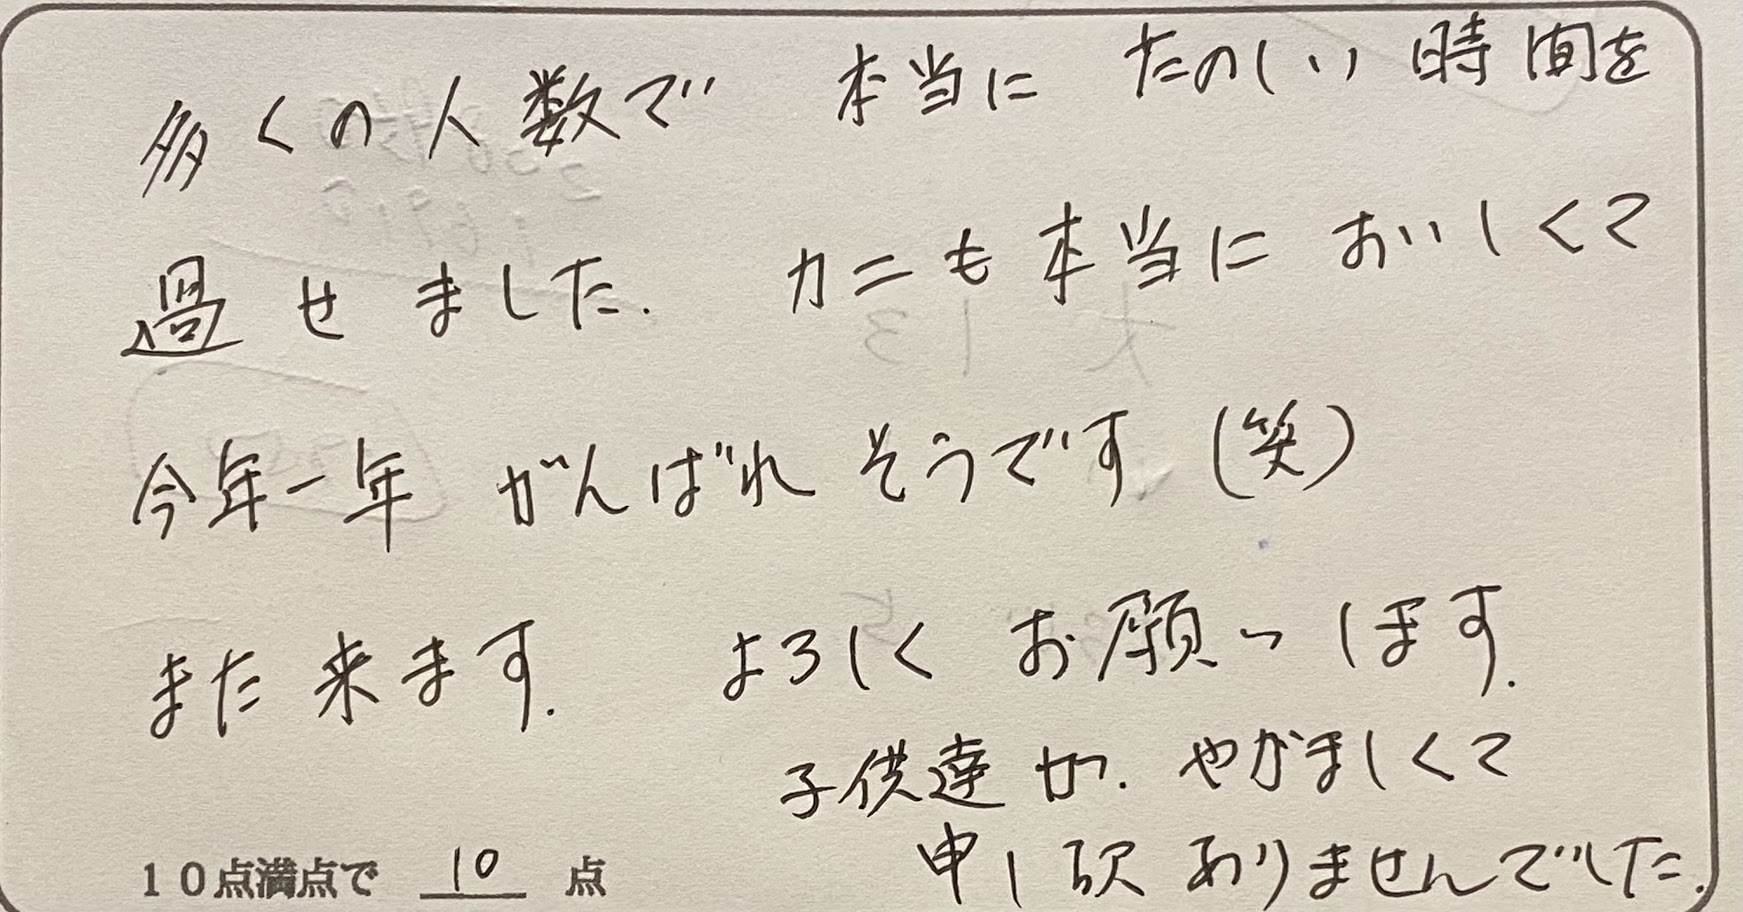 多くの人数で 本当に たのしい時間を
過せました. カニも本当に おいしくて
今年一年 がんばれそうです (笑)
また来ます. よろしく お願いします.
子供達が. やかましくて
申し訳ありませんでした.
10点満点で 10 点